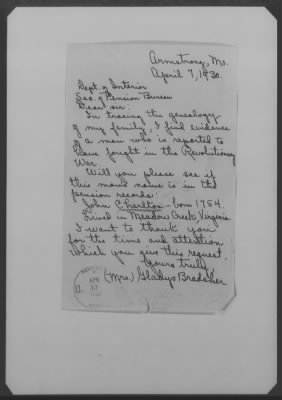 Armstrong, Mo.
April 7, 1930.
Dept. of Interior
Sec. of Pension Bureau
Dear sir:
In tracing the genealogy
of my family, I find evidence
of a man who is reported to
have fought in the Revolutionary
War.
Will you please see if
this man's name is in the
pension records:
John Charlton - born 1754.
Lived in Meadow Creek, Virginia
I want to thank you
for the time and attention
which you give this request.
Yours truly
(Mrs) Gladys Bradsher
APR
10